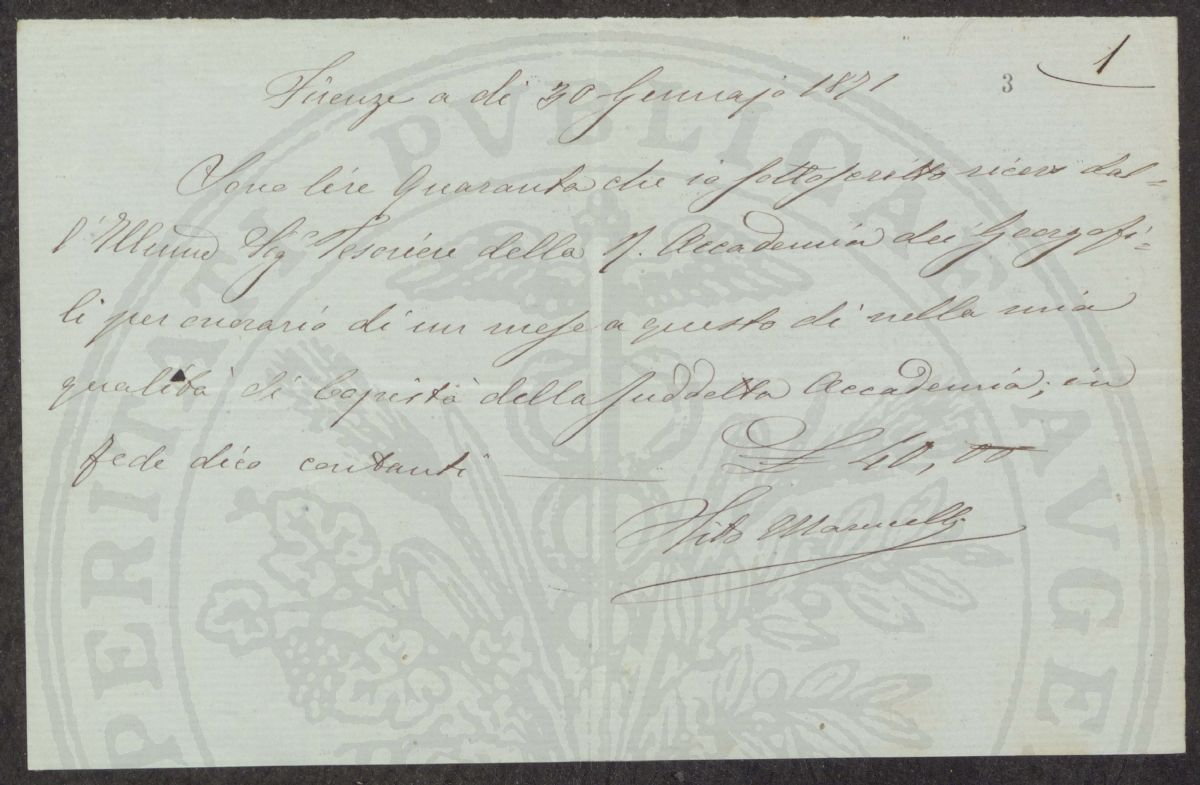 1
3
Firenze a di 30 Gennajo 1871
Sono lire Quaranta che io sottoscritto ricevo dal=
l'Illmo Sigr Tesoriere della R. Accademia dei Georgofi=
li per onorario di un mese a questo di nella mia
qualità di Copista della suddetta Accademia; in
fede dico contanti £ 40,00
Vito
PROSPERITATI PVBLICAE AVGE